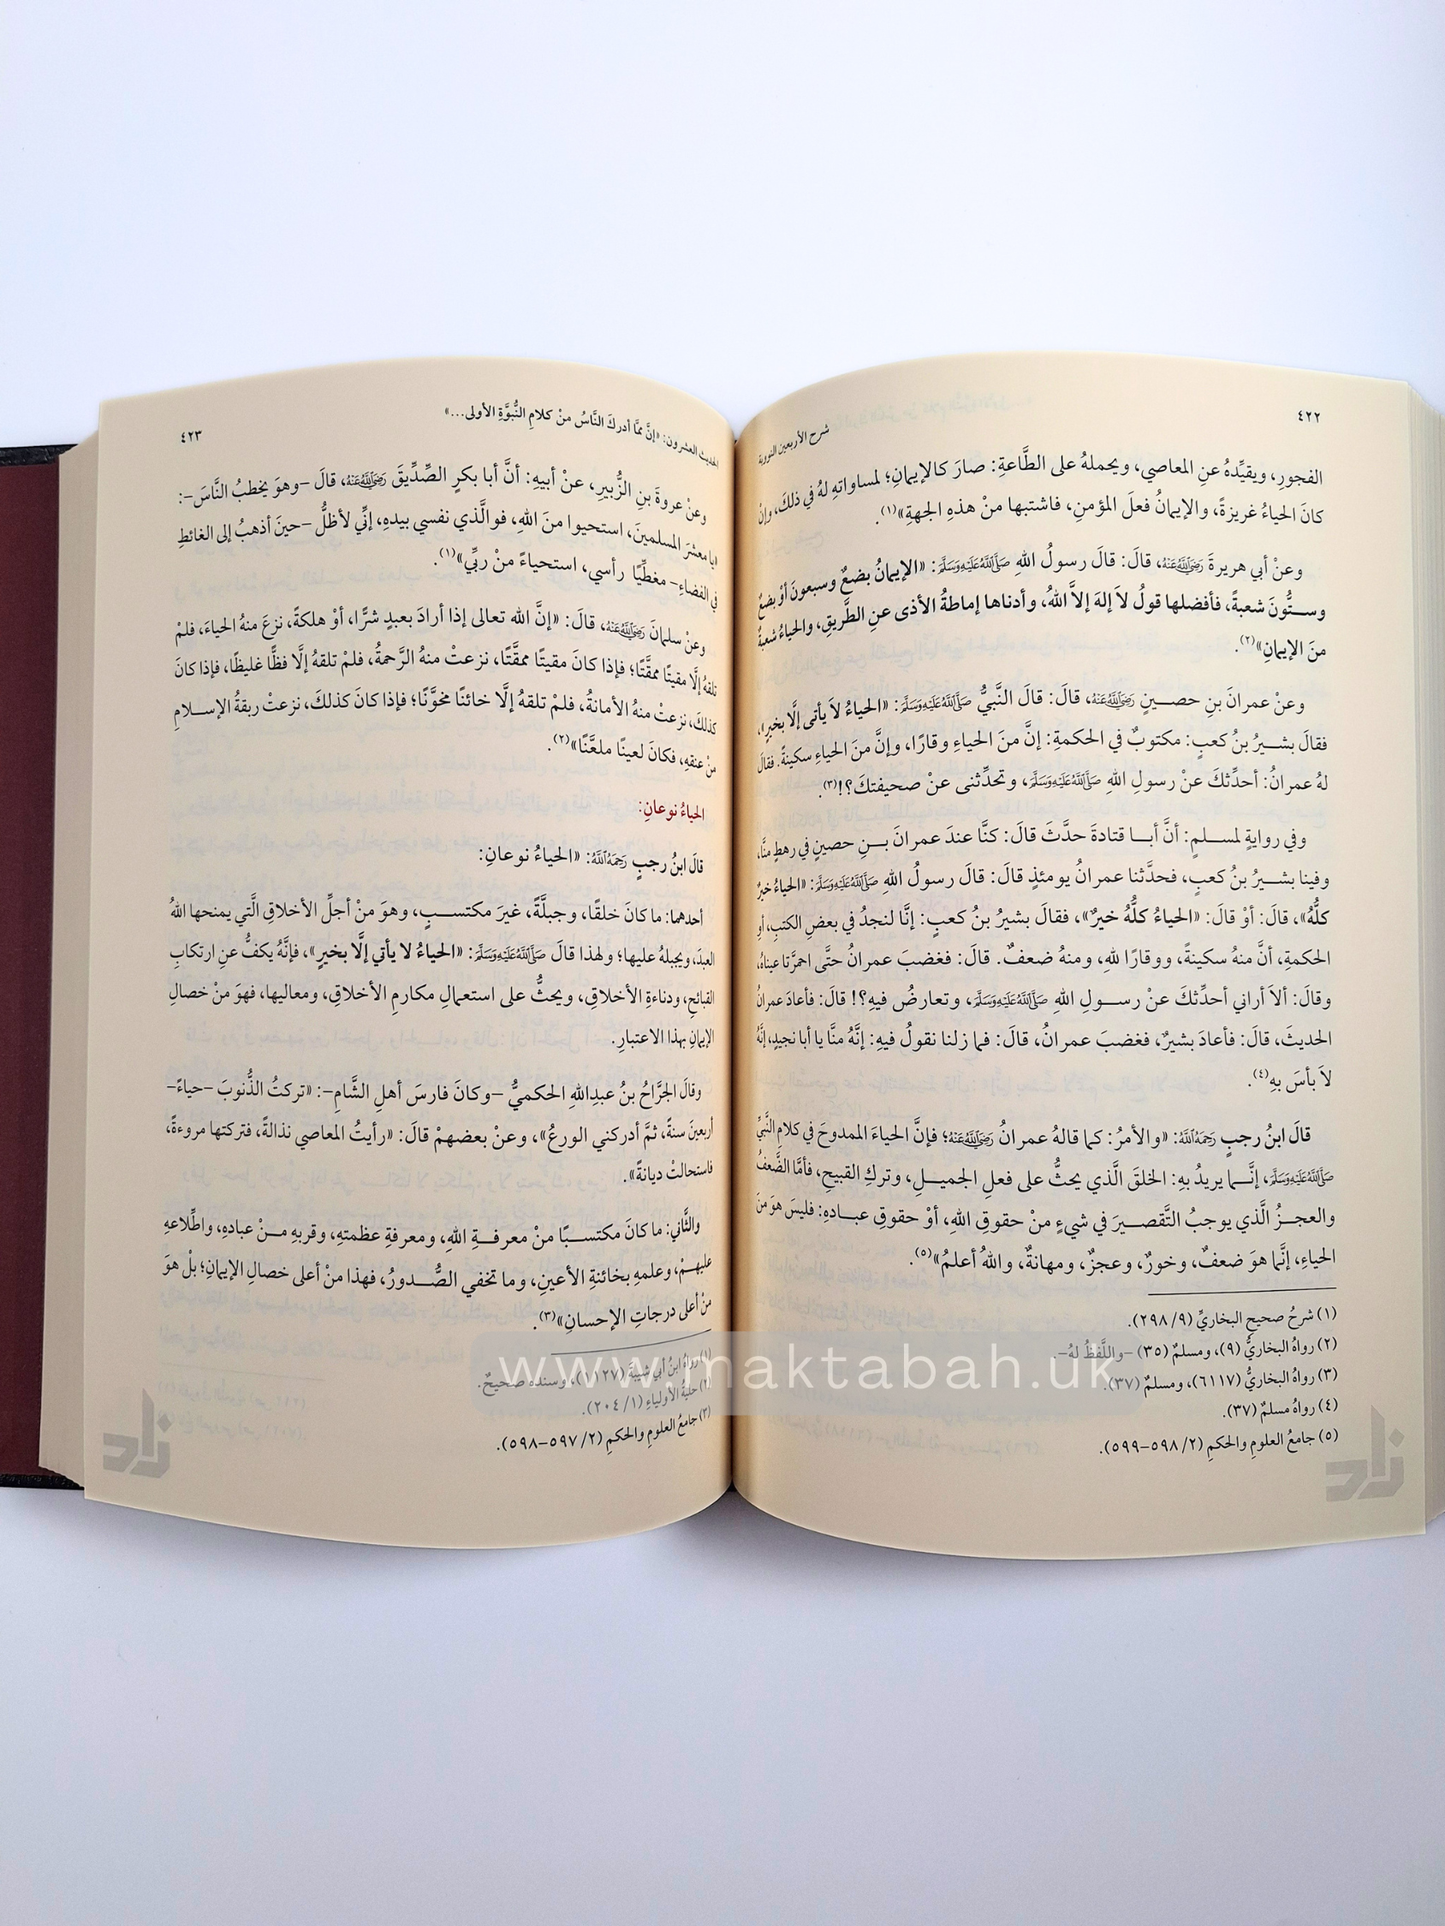 ٤٢٢
شرح الأربعين النووية
الفجورِ، ويقيِّدهُ عنِ المعاصي، ويحملهُ على الطَّاعةِ: صارَ كالإيمانِ؛ لمساواتهِ لهُ في ذلكَ، وإنْ
كانَ الحياءُ غريزةً، والإيمانُ فعلَ المؤمنِ، فاشتبها منْ هذهِ الجهةِ»(١).
وعنْ أبي هريرةَ رَضِيَاللَّهُعَنْهُ، قالَ: قالَ رسولُ اللهِ صَلَّىاللَّهُعَلَيْهِوَسَلَّمَ: «الإيمانُ بضعٌ وسبعونَ أوْ بضعٌ
وستُّونَ شعبةً، فأفضلها قولُ لاَ إلهَ إلاَّ اللهُ، وأدناها إماطةُ الأذى عنِ الطَّريقِ، والحياءُ شعبةٌ
منَ الإيمانِ»(٢).
وعنْ عمرانَ بنِ حصينٍ رَضِيَاللَّهُعَنْهُ، قالَ: قالَ النَّبيُّ صَلَّىاللَّهُعَلَيْهِوَسَلَّمَ: «الحياءُ لاَ يأتى إلَّا بخيرٍ»،
فقالَ بشيرُ بنُ كعبٍ: مكتوبٌ في الحكمةِ: إنَّ منَ الحياءِ وقارًا، وإنَّ منَ الحياءِ سكينةً. فقالَ
لهُ عمرانُ: أحدِّثكَ عنْ رسولِ اللهِ صَلَّىاللَّهُعَلَيْهِوَسَلَّمَ، وتحدِّثنى عنْ صحيفتكَ؟!(٣).
وفي روايةٍ لمسلمٍ: أنَّ أبا قتادةَ حدَّثَ قالَ: كنَّا عندَ عمرانَ بنِ حصينٍ في رهطٍ منَّا،
وفينا بشيرُ بنُ كعبٍ، فحدَّثنا عمرانُ يومئذٍ قالَ: قالَ رسولُ اللهِ صَلَّىاللَّهُعَلَيْهِوَسَلَّمَ: «الحياءُ خيرٌ
كلُّهُ»، قالَ: أوْ قالَ: «الحياءُ كلُّهُ خيرٌ»، فقالَ بشيرُ بنُ كعبٍ: إنَّا لنجدُ في بعضِ الكتبِ، أوِ
الحكمةِ، أنَّ منهُ سكينةً، ووقارًا للهِ، ومنهُ ضعفٌ. قالَ: فغضبَ عمرانُ حتَّى احمرَّتا عيناهُ،
وقالَ: ألاَ أراني أحدِّثكَ عنْ رسولِ اللهِ صَلَّىاللَّهُعَلَيْهِوَسَلَّمَ، وتعارضُ فيهِ؟! قالَ: فأعادَ عمرانُ
الحديثَ، قالَ: فأعادَ بشيرٌ، فغضبَ عمرانُ، قالَ: فما زلنا نقولُ فيهِ: إنَّهُ منَّا يا أبا نجيدٍ، إنَّهُ
لاَ بأسَ بهِ(٤).
قالَ ابنُ رجبٍ رَحِمَهُاللَّهُ: «والأمرُ: كما قالهُ عمرانُ رَضِيَاللَّهُعَنْهُ؛ فإنَّ الحياءَ الممدوحَ في كلامِ النَّبيِّ
صَلَّىاللَّهُعَلَيْهِوَسَلَّمَ، إنَّما يريدُ بهِ: الخلقَ الَّذي يحثُّ على فعلِ الجميلِ، وتركِ القبيحِ، فأمَّا الضَّعفُ
والعجزُ الَّذي يوجبُ التَّقصيرَ في شيءٍ منْ حقوقِ اللهِ، أوْ حقوقِ عبادهِ: فليسَ هوَ منَ
الحياءِ، إنَّما هوَ ضعفٌ، وخورٌ، وعجزٌ، ومهانةٌ، واللهُ أعلمُ»(٥)
(١) شرحُ صحيحِ البخاريِّ (٩/ ٢٩٨).
(٢) رواهُ البخاريُّ (٩)، ومسلمٌ (٣٥) -واللَّفظُ لهُ-.
(٣) رواهُ البخاريُّ (٦١١٧)، ومسلمٌ (٣٧).
(٤) رواهُ مسلمٌ (٣٧).
(٥) جامعُ العلومِ والحكمِ (٢/ ٥٩٨-٥٩٩).
زاد
الحديث العشرون: «إنَّ ممَّا أدركَ النَّاسُ منْ كلامِ النُّبوَّةِ الأولى...»
٤٢٣
وعنْ عروةَ بنِ الزُّبيرِ، عنْ أبيهِ: أنَّ أبا بكرٍ الصِّدِّيقَ رَضِيَاللَّهُعَنْهُ، قالَ -وهوَ يخطبُ النَّاسَ-:
«يا معشرَ المسلمينَ، استحيوا منَ اللهِ، فوالَّذي نفسي بيدهِ، إنِّي لأظلُّ -حينَ أذهبُ إلى الغائطِ
في الفضاءِ- مغطِّيًا رأسي، استحياءً منْ ربِّي»(١).
وعنْ سلمانَ رَضِيَاللَّهُعَنْهُ، قالَ: «إنَّ اللهَ تعالى إذا أرادَ بعبدٍ شرًّا، أوْ هلكةً، نزعَ منهُ الحياءَ، فلمْ
تلقهُ إلَّا مقيتًا ممقَّتًا؛ فإذا كانَ مقيتًا ممقَّتًا، نزعتْ منهُ الرَّحمةُ، فلمْ تلقهُ إلَّا فظًّا غليظًا، فإذا كانَ
كذلكَ، نزعتْ منهُ الأمانةُ، فلمْ تلقهُ إلَّا خائنًا مخوَّنًا؛ فإذا كانَ كذلكَ، نزعتْ ربقةُ الإسلامِ
منْ عنقهِ، فكانَ لعينًا ملعَّنًا»(٢).
الحياءُ نوعانِ:
قالَ ابنُ رجبٍ رَحِمَهُاللَّهُ: «الحياءُ نوعانِ:
أحدهما: ما كانَ خلقًا، وجبلَّةً، غيرَ مكتسبٍ، وهوَ منْ أجلِّ الأخلاقِ الَّتي يمنحها اللهُ
العبدَ، ويجبلهُ عليها؛ ولهذا قالَ صَلَّىاللَّهُعَلَيْهِوَسَلَّمَ: «الحياءُ لا يأتي إلَّا بخيرٍ»، فإنَّهُ يكفُّ عنِ ارتكابِ
القبائحِ، ودناءةِ الأخلاقِ، ويحثُّ على استعمالِ مكارمِ الأخلاقِ، ومعاليها، فهوَ منْ خصالِ
الإيمانِ بهذا الاعتبارِ.
وقالَ الجرَّاحُ بنُ عبدِاللهِ الحكميُّ -وكانَ فارسَ أهلِ الشَّامِ-: «تركتُ الذُّنوبَ -حياءً-
أربعينَ سنةً، ثمَّ أدركني الورعُ»، وعنْ بعضهمْ قالَ: «رأيتُ المعاصي نذالةً، فتركتها مروءةً،
فاستحالتْ ديانةً».
والثَّاني: ما كانَ مكتسبًا منْ معرفةِ اللهِ، ومعرفةِ عظمتهِ، وقربهِ منْ عبادهِ، واطِّلاعهِ
عليهمْ، وعلمهِ بخائنةِ الأعينِ، وما تخفي الصُّدورُ، فهذا منْ أعلى خصالِ الإيمانِ؛ بلْ هوَ
منْ أعلى درجاتِ الإحسانِ»(٣).
(١) رواهُ ابنُ أبي شيبةَ (١١٢٧)، وسنده صحيحٌ.
(٢) حليةُ الأولياءِ (١/ ٢٠٤).
(٣) جامعُ العلومِ والحكمِ (٢/ ٥٩٧-٥٩٨).
زاد
www.maktabah.uk